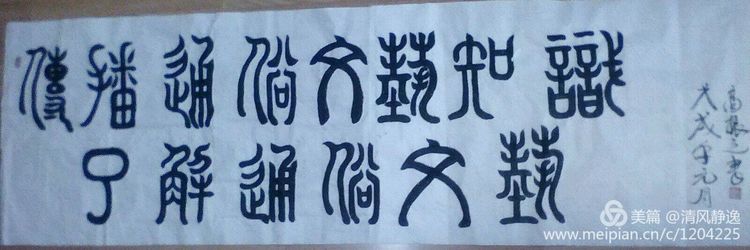 傳播通俗文藝知識
了解通俗文藝
戊戌年元月
美篇 @清风静逸
www.meipian.cn/c/1204225